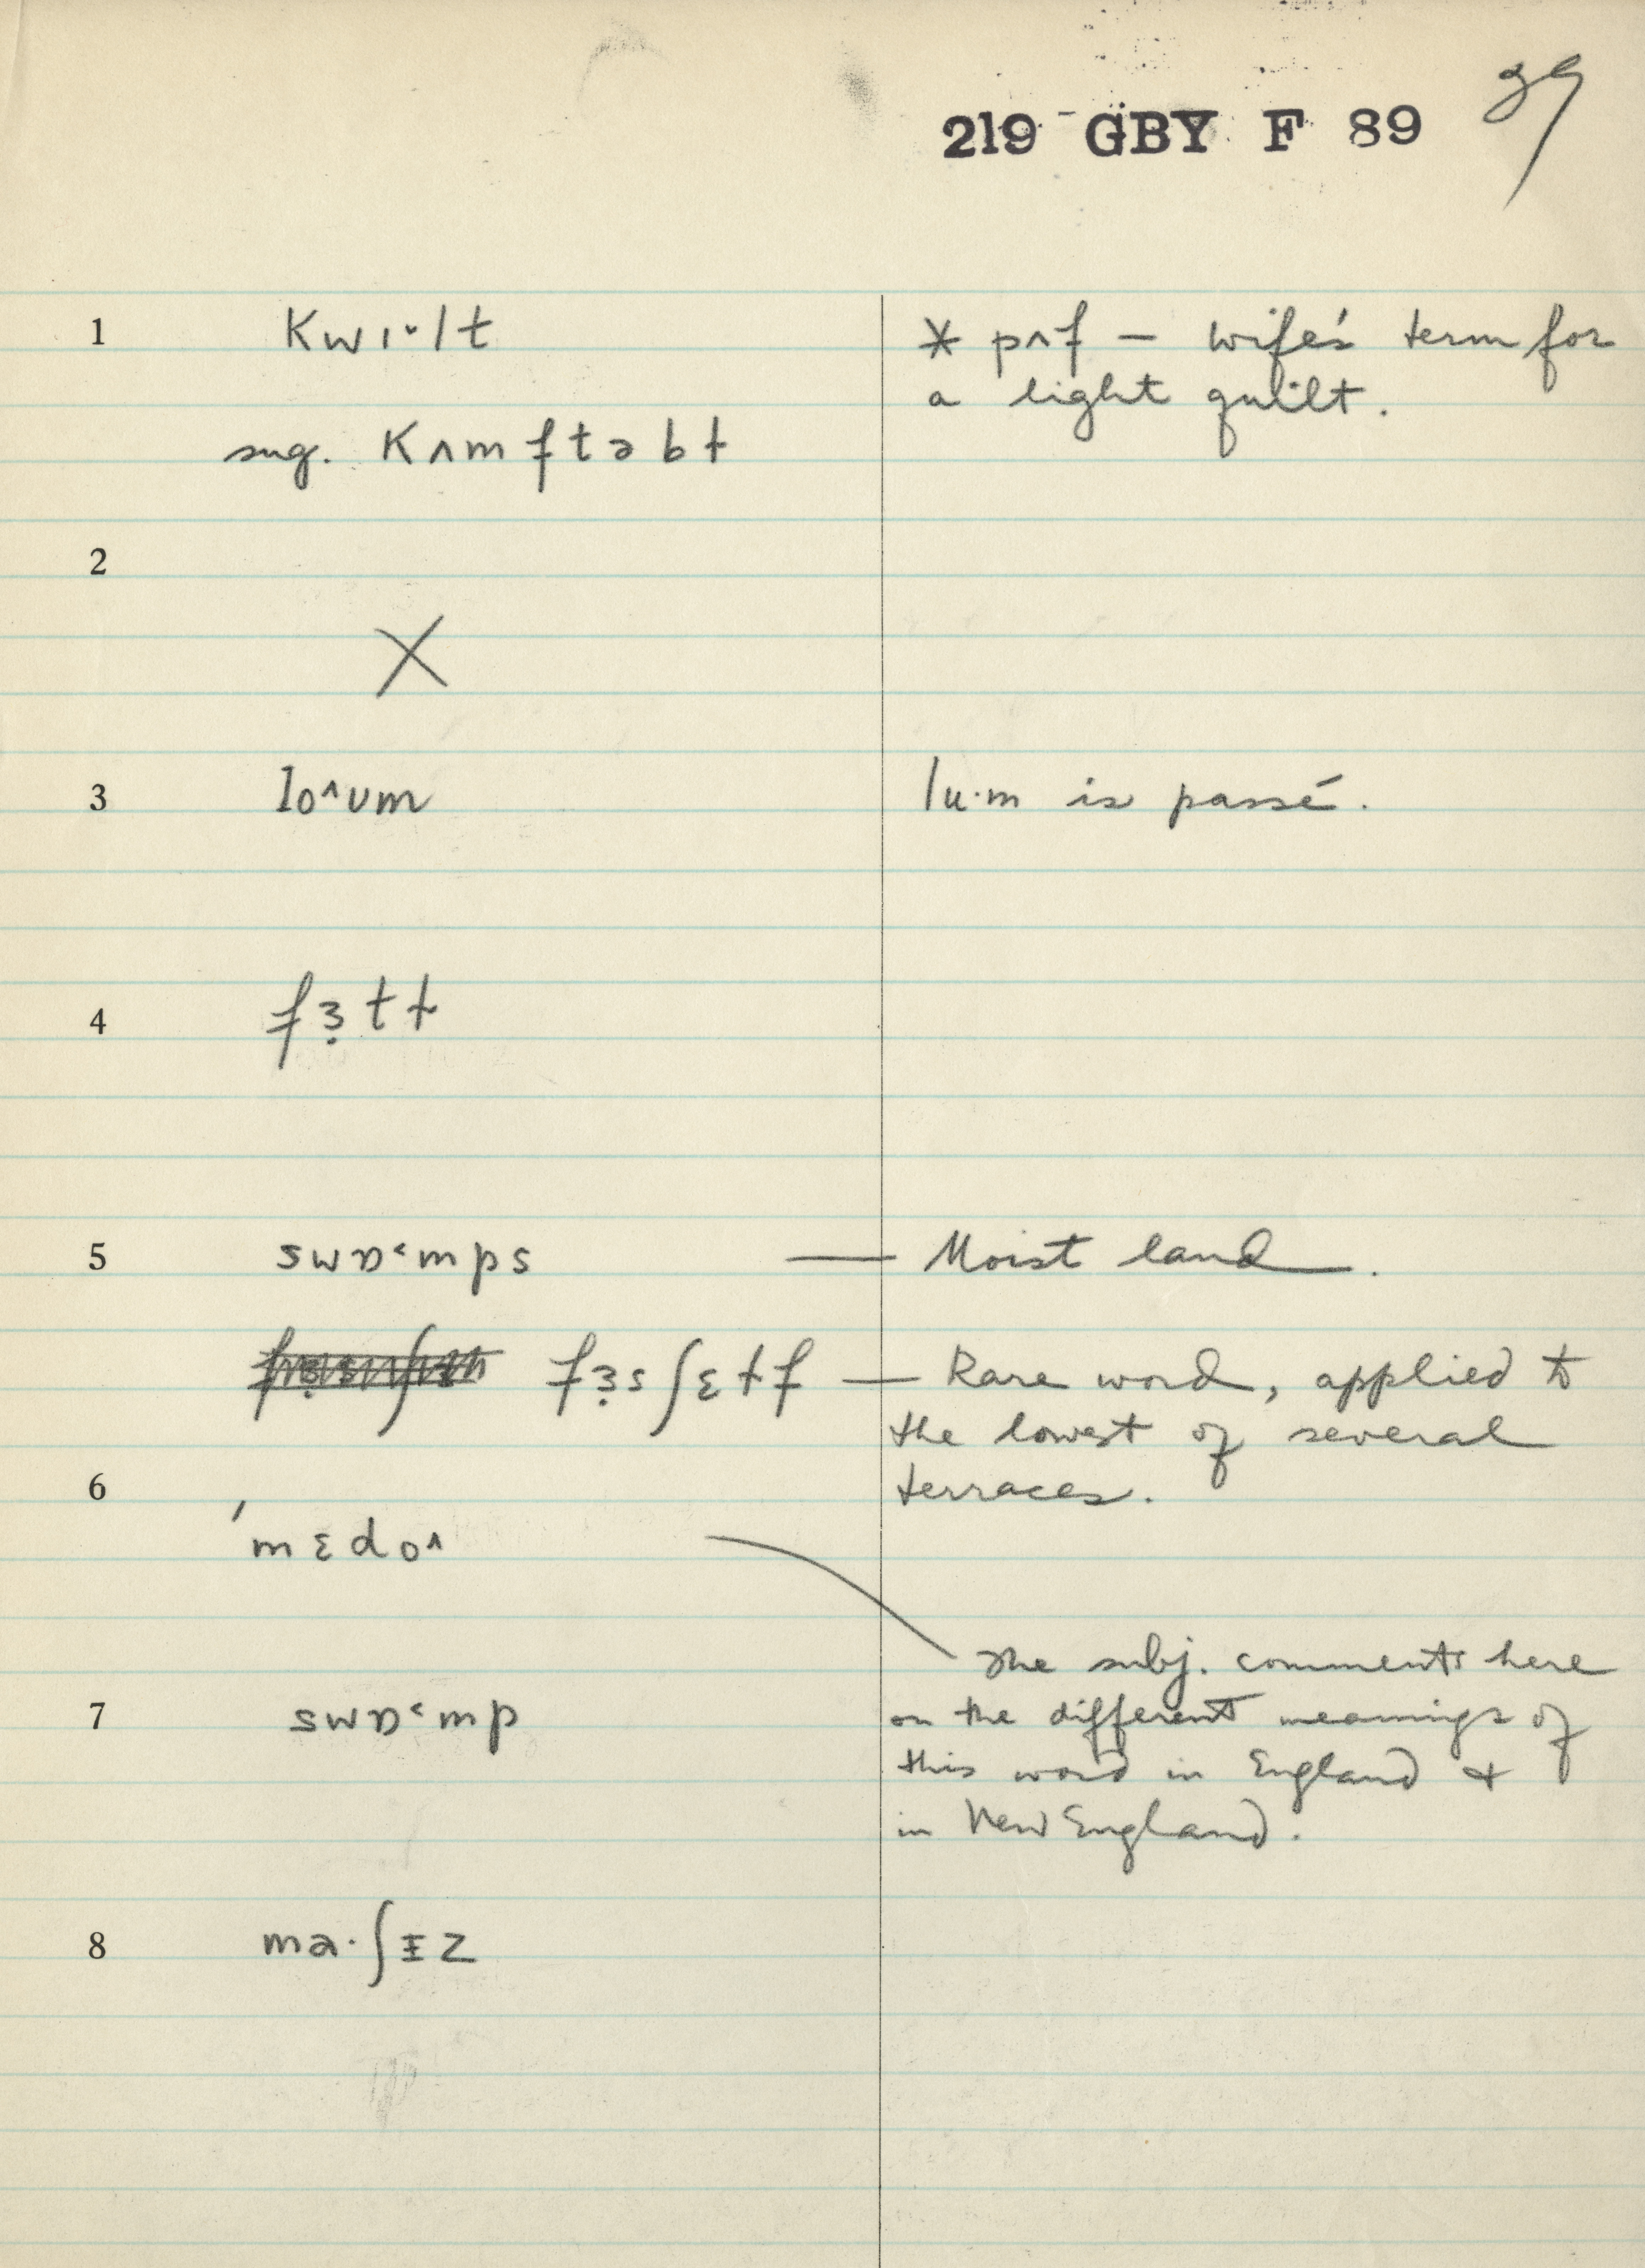 219 GBY F 89
39
1 kwɪ˅lt * pʌf — wife's term for
a light quilt.
sug. kʌmftəbt
2
X
3 lo^ʊm lu·m is passé.
4
5 swɒ˂mps — Moist land.
— Rare word, applied to
the lowest of several
6 terraces.
'mɛdo^
The subj. comments here
7 swɒ˂mp on the different meanings of
this word in England &
in New England.
8 ma·ʃɪz